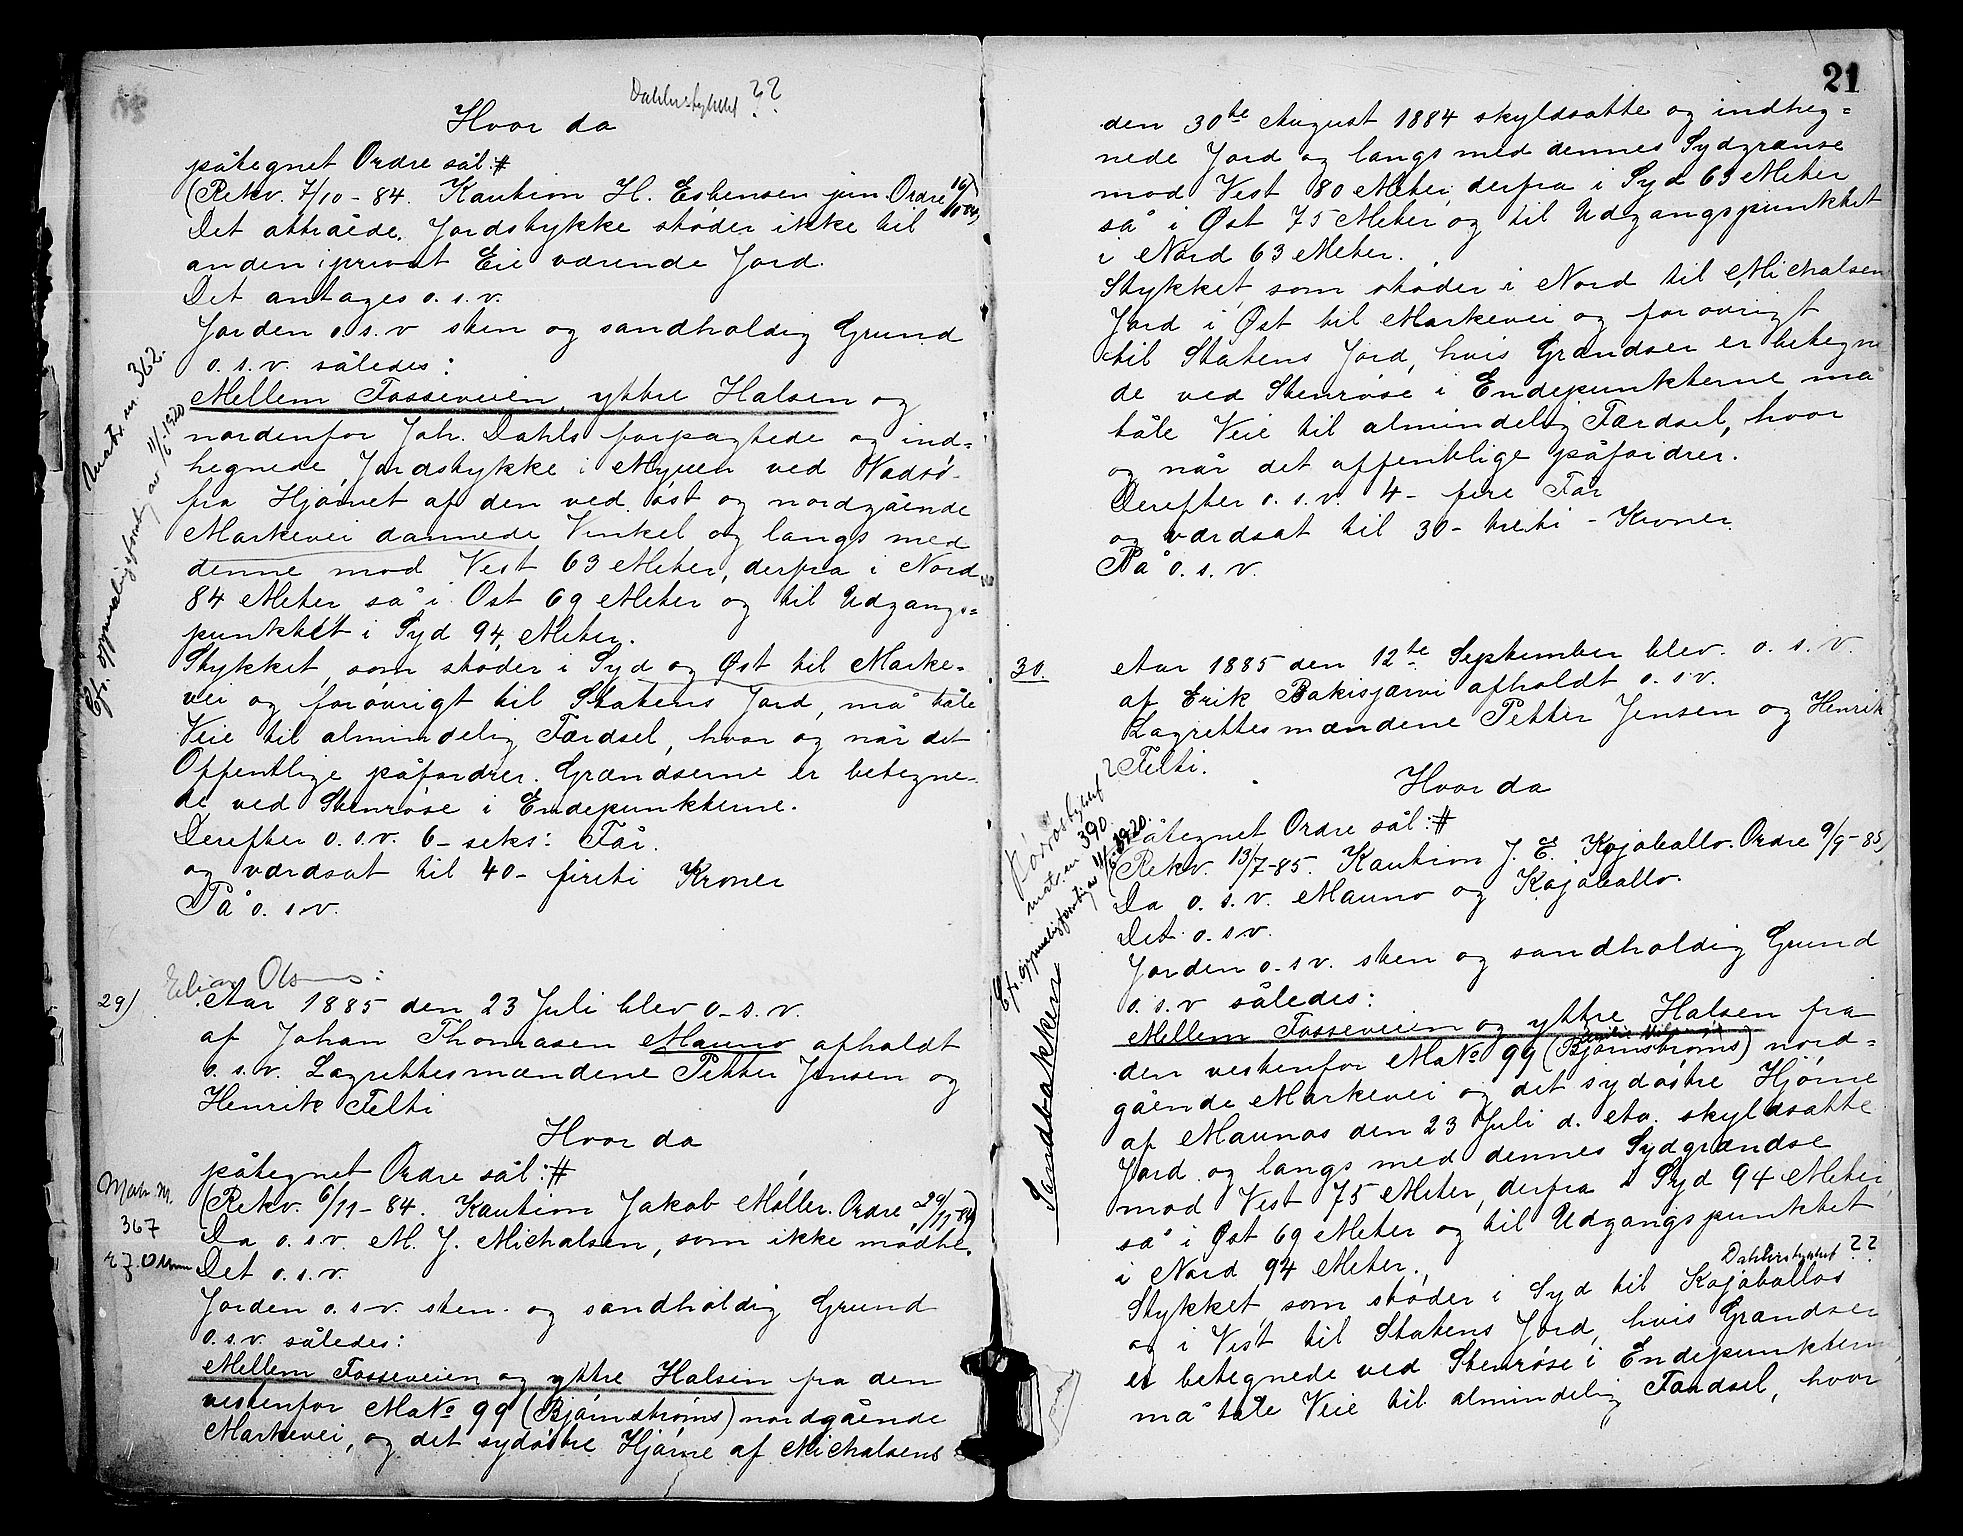 Dahlerstykket ??
Hvor da
påtegnet Ordre sål:#
(Rekv. 7/10-84. Kaution H. Esbensen jun Ordre 16/10 84)
Det attråede Jordstykke støder ikke til
anden i privat Eie værende Jord.
Det antages o.s.v.
Jorden o.s.v sten og sandholdig Grund
o.s.v. således:
Mellem Fosseveien, yttre Halsen og
nordenfor Joh. Dahls forpagtede og ind=
hegnede Jordstykke i Myren ved Vadsø
fra Hjørnet af den ved øst og nordgående
Markevei dannede Vinkel og langs med
denne mod Vest 63 Meter, derfra i Nord
84 Meter så i Øst 69 Meter og til Udgangs=
punktet i Syd 94, Meter.
Stykket, som støder i Syd og Øst til Marke=
vei og forøvrigt til Statens Jord, må tåle
Veie til almindelig Færdsel, hvor og når det
Offentlige påfordrer. Grændserne er betegne=
de ved Stenrøse i Endepunkterne.
Derefter o.s.v. 6- seks: Får.
og værdsat til 40- firti Kroner
På o.s.v.
Matr. nr. 362.
Cfr. opmålingsforretning av 11/6-1920
Elias Olsens:
29) Aar 1885 den 23 Juli blev o.s.v.
af Johan Thomasen Mauno afholdt
o.s.v. Lagrettesmændene Petter Jensen og
Henrik Felti
Hvor da
påtegnet Ordre sål:#
(Rekv. 6/11-84. Kaution Jakob Møller. Ordre 29/11 84)
Da o.s.v. M. J. Michalsen, som ikke mødte.
Det o.s.v.
Jorden o.s.v. sten og sandholdig Grund
o.s.v. således:
Mellem Fosseveien og yttre Halsen fra den
vestenfor Ma No 99 (Bjørnstrøms) nordgående
Markevei, og det sydøstre Hjørne af Michalsens
Matr. nr.
367
21
den 30te August 1884 skyldsatte og indheg=
nede Jord og langs med dennes Sydgrænse
mod Vest 80 Meter, derfra i Syd 63 Meter
så i Øst 75 Meter og til Udgangspunktet
i Nord 63 Meter.
Stykket, som støder i Nord til Michalsens
Jord i Øst til Markevei og forøvrigt
til Statens Jord, hvis Grændser er betegne
de ved Stenrøse i Endepunkterne må
tåle Veie til almindelig Færdsel, hvor
og når det offentlige påfordrer.
Derefter o.s.v. 4- fire Får
og værdsat til 30- treti - Kroner.
På o.s.v.
30. Aar 1885 den 12te September blev o.s.v.
af Erik Bakisjarvi afholdt o.s.v.
Lagrettesmændene Petter Jensen og Henrik
Felti.
Hvor da
påtegnet Ordre sål:#
(Rekv. 13/7-85. Kaution J. E. Kojoballo. Ordre 9/9-85)
Da o.s.v. Mauno og Kojoballo.
Det o.s.v.
Jorden o.s.v. sten og sandholdig Grund
o.s.v således:
Mellem Fosseveien og yttre Halsen fra
den vestenfor Ma No 99 (Bjørnstrøms) nord=
gående Markevei og det sydøstre Hjørne
af Maunos den 23 Juli d. Aa. skyldsatte
Jord og langs med dennes Sydgrændse
mod Vest 75 Meter, derfra i Syd 94 Meter,
så i Øst 69 Meter og til Udgangspunktet
i Nord 94 Meter.
Dahlerstykket ??
Stykket, som støder i Syd til Kojoballos
og i Vest til Statens Jord, hvis Grændser
er betegnede ved Stenrøse i Endepunkterne,
må tåle Veie til almindelig Færdsel, hvor
matr. nr 390.
Cfr. opmålingsforretning av 11/6-1920.
Sandbakkene